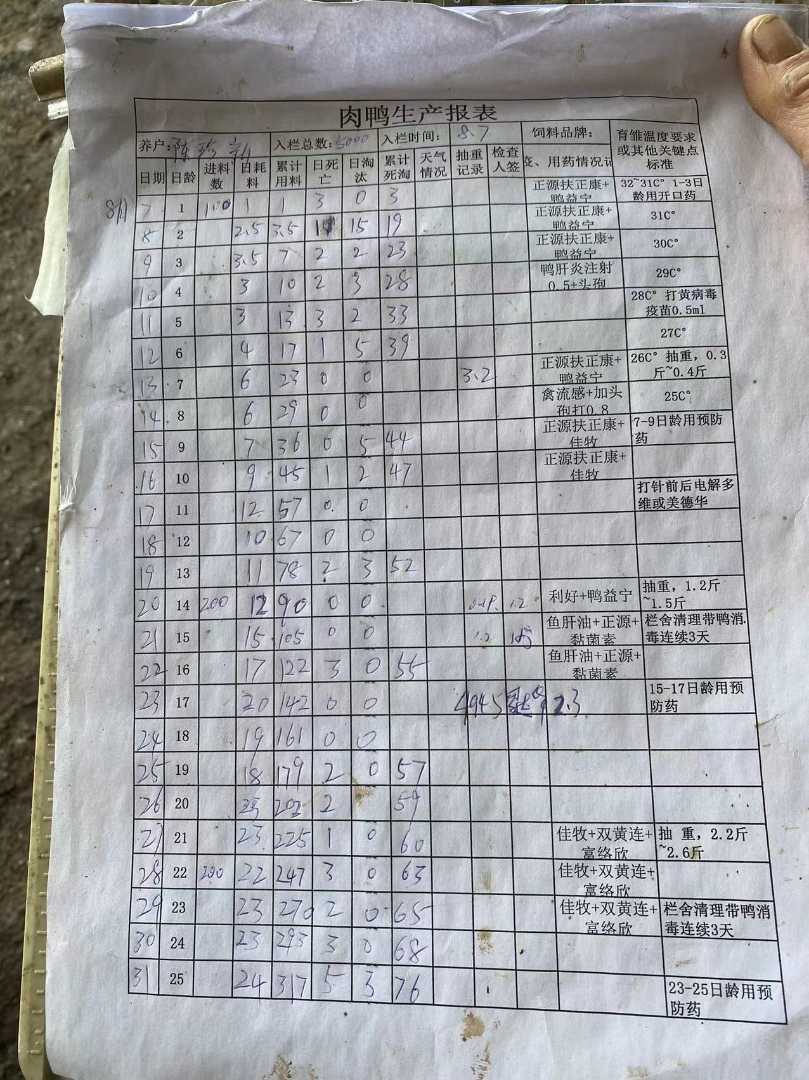 肉鸭生产报表
养户: 陈 入栏总数: 5000 入栏时间: 8.7 饲料品牌: 育雏温度要求或其他关键点标准
日期 日龄 进料数 日耗料 累计用料 日死亡 日淘汰 累计死淘 天气情况 抽重记录 检查人签 变、用药情况记
8月 7 1 1 1 3 0 3 正源扶正康+鸭益宁 32~31C° 1-3日龄用开口药
8 2 2.5 3.5 15 19 正源扶正康+鸭益宁 31C°
9 3 3.5 7 2 2 23 正源扶正康+鸭益宁 30C°
10 4 3 10 2 3 28 鸭肝炎注射0.5+头孢 29C°
11 5 3 13 3 2 33 28C° 打黄病毒疫苗0.5ml
12 6 4 17 1 5 39 27C°
13 7 6 23 0 0 3.2 正源扶正康+鸭益宁 26C° 抽重, 0.3斤~0.4斤
14 8 6 29 0 0 禽流感+加头孢打0.8 25C°
15 9 7 36 0 5 44 正源扶正康+佳牧 7-9日龄用预防药
16 10 9 45 1 2 47 正源扶正康+佳牧
17 11 12 57 0 0 打针前后电解多维或美德华
18 12 10 67 0 0
19 13 11 78 2 3 52
20 14 200 12 90 0 0 1.2 利好+鸭益宁 抽重, 1.2斤~1.5斤
21 15 15 105 0 0 1.2 鱼肝油+正源+黏菌素 栏舍清理带鸭消毒连续3天
22 16 17 122 3 0 55 鱼肝油+正源+黏菌素
23 17 20 142 0 0 4945 2.3 15-17日龄用预防药
24 18 19 161 0 0
25 19 18 179 2 0 57
26 20 202 2 59
27 21 23 225 1 0 60 佳牧+双黄连+富络欣 抽 重, 2.2斤~2.6斤
28 22 200 22 247 3 0 63 佳牧+双黄连+富络欣
29 23 23 270 2 0 65 佳牧+双黄连+富络欣 栏舍清理带鸭消毒连续3天
30 24 23 293 3 0 68
31 25 24 317 5 3 76 23-25日龄用预防药